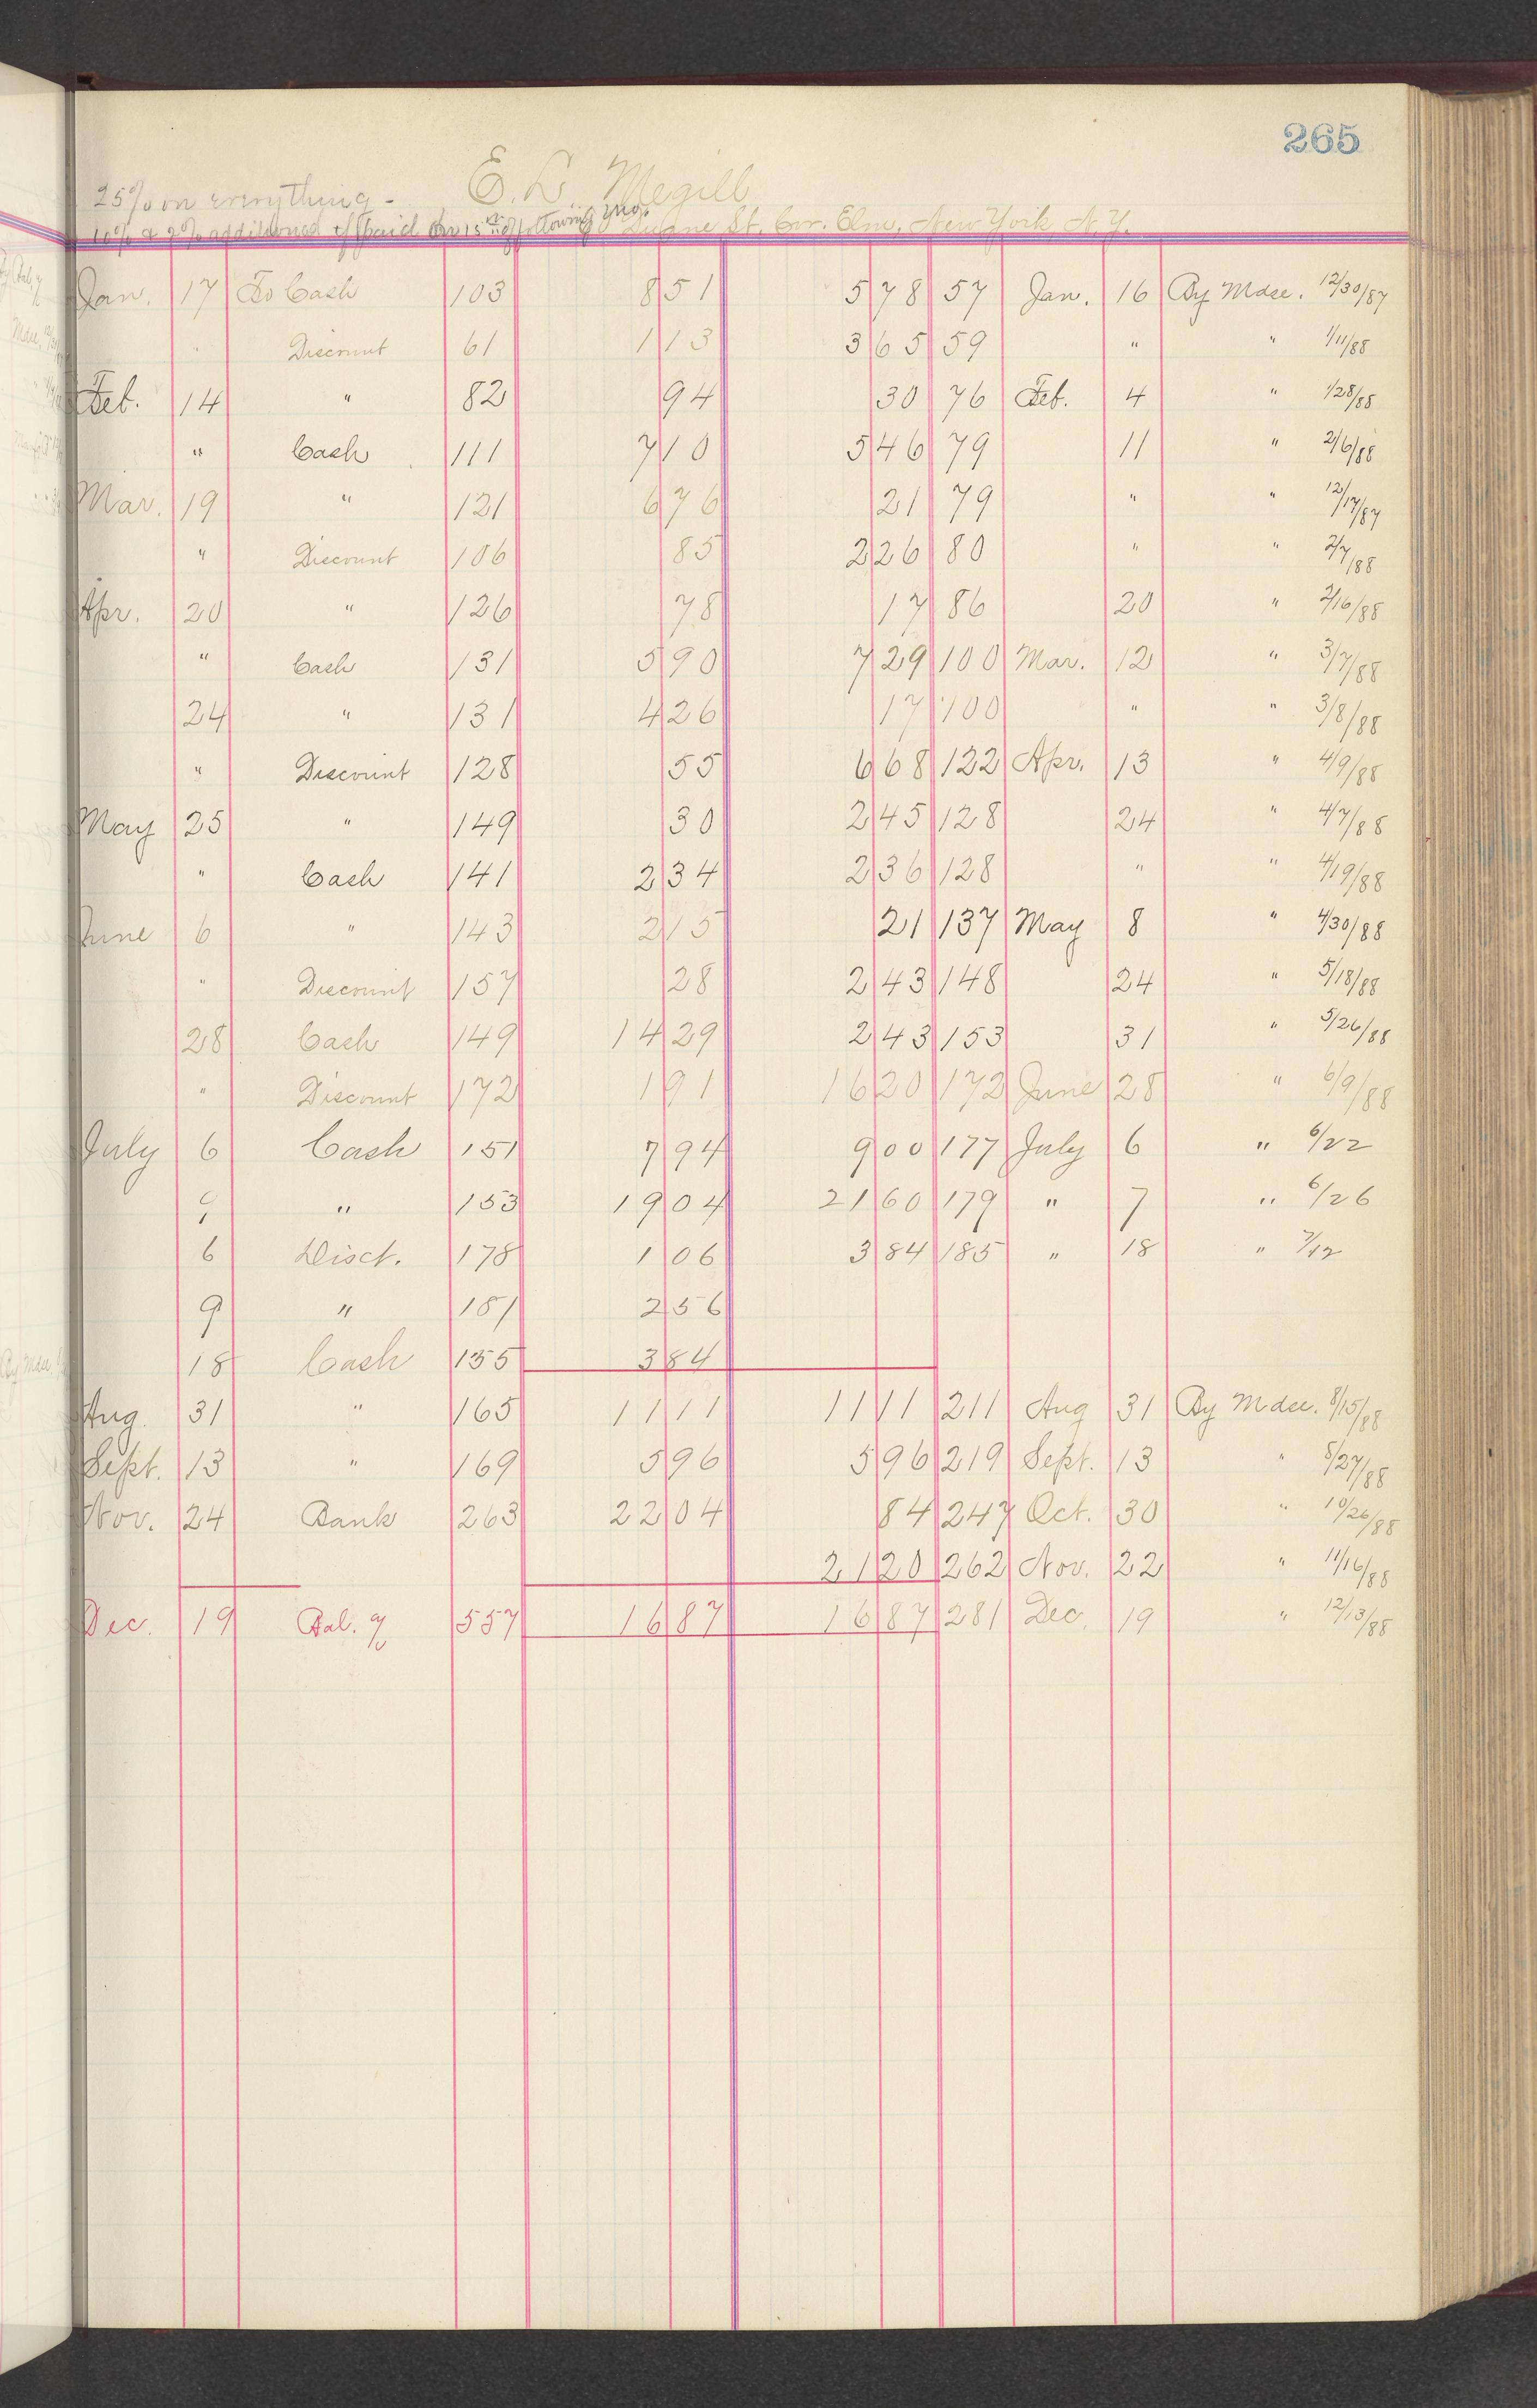 265
E. L. Megill
25% on everything -
10% & 2% additional if paid on 15th of following mo. Duane St. Cor. Elm, New York N.Y.
Jan. 17 To Cash 103 8 51 5 78 57 Jan. 16 By Mdse. 12/30/87
" Discount 61 1 13 3 65 59 " " 1/11/88
Feb. 14 " 82 94 30 76 Feb. 4 " 1/28/88
" Cash 111 7 10 5 46 79 11 " 2/6/88
Mar. 19 " 121 6 76 21 79 " " 12/17/87
" Discount 106 85 2 26 80 " " 2/7/88
Apr. 20 " 126 78 17 86 20 " 2/16/88
" Cash 131 5 90 7 29 100 Mar. 12 " 3/7/88
24 " 131 4 26 17 100 " " 3/8/88
" Discount 128 55 6 68 122 Apr. 13 " 4/9/88
May 25 " 149 30 2 45 128 24 " 4/7/88
" Cash 141 2 34 2 36 128 " " 4/19/88
June 6 " 143 2 15 21 137 May 8 " 4/30/88
" Discount 157 28 2 43 148 24 " 5/18/88
28 Cash 149 14 29 2 43 153 31 " 5/26/88
" Discount 172 1 91 16 20 172 June 28 " 6/9/88
July 6 Cash 151 7 94 9 00 177 July 6 " 6/22
9 " 153 19 04 21 60 179 " 7 " 6/26
6 Disct. 178 1 06 3 84 185 " 18 " 7/12
9 " 181 2 56
18 Cash 155 3 84
Aug. 31 " 165 11 11 11 11 211 Aug 31 By Mdse. 8/15/88
Sept. 13 " 169 5 96 5 96 219 Sept. 13 " 8/27/88
Nov. 24 Bank 263 22 04 84 247 Oct. 30 " 10/26/88
21 20 262 Nov. 22 " 11/16/88
Dec. 19 Bal. 557 16 87 16 87 281 Dec. 19 " 12/13/88